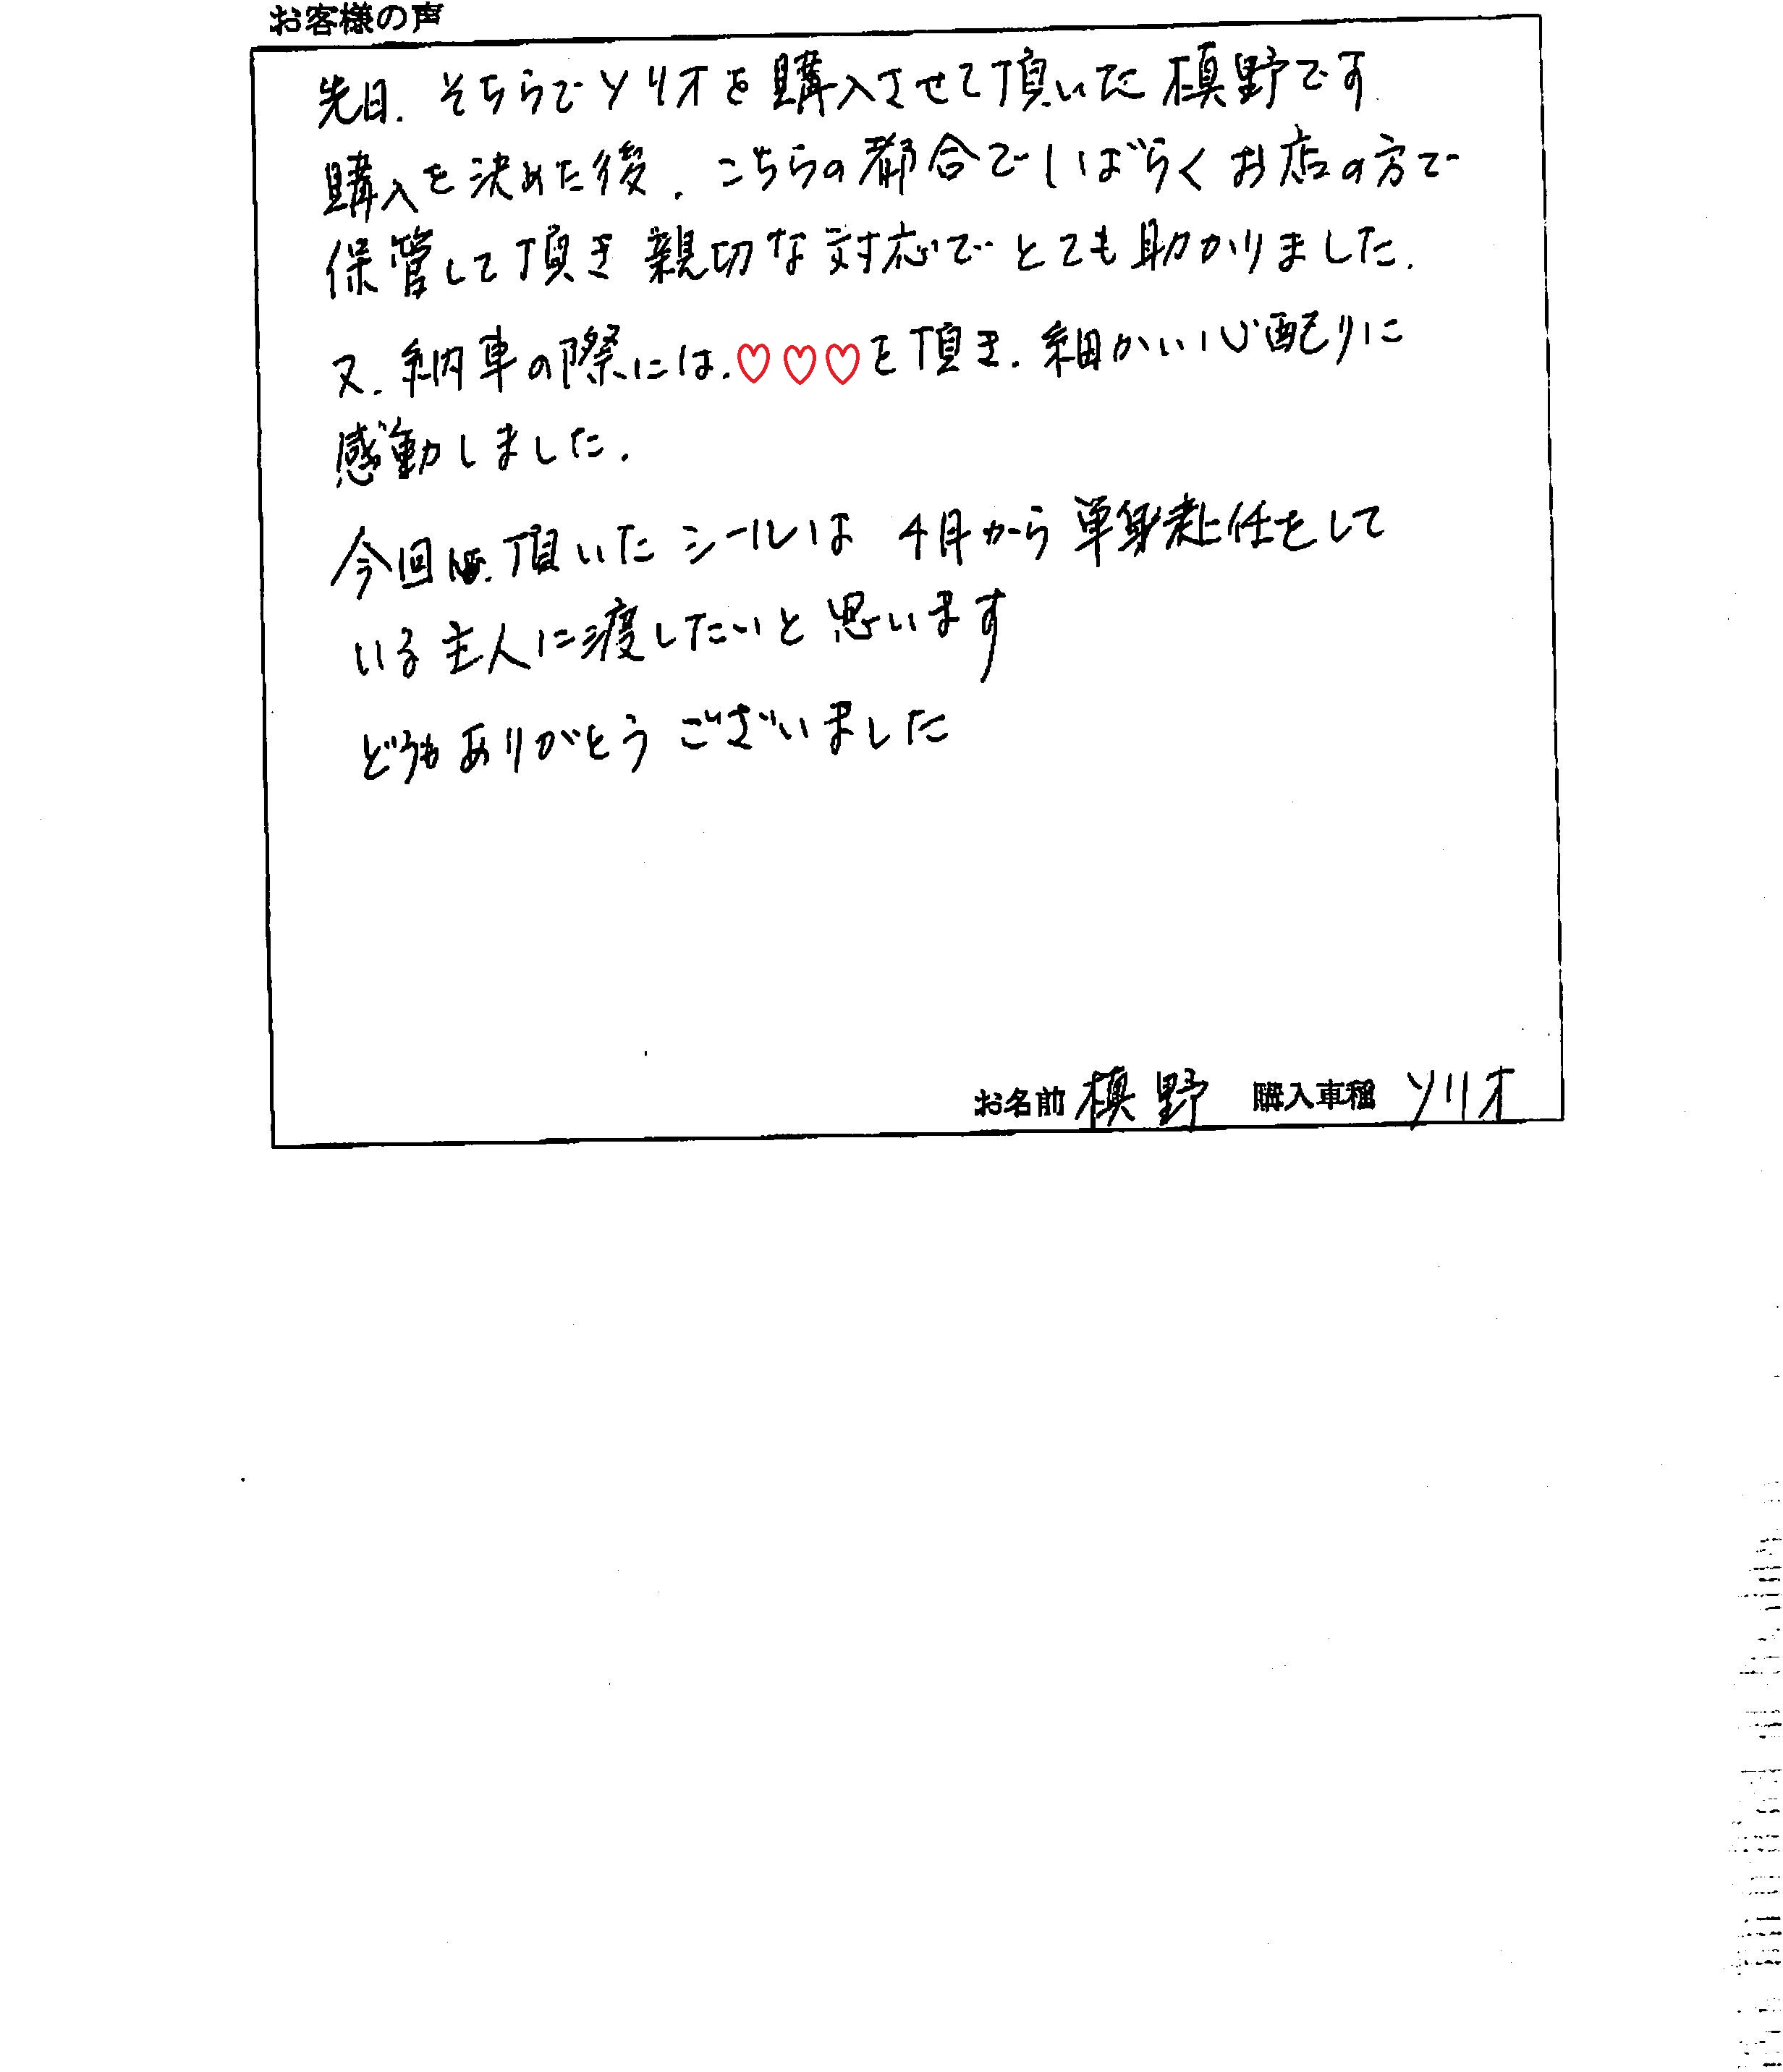 お客様の声
先日、そちらでソリオを購入させて頂いた槙野です
購入を決めた後、こちらの都合でしばらくお店の方で
保管して頂き親切な対応でとても助かりました。
又、納車の際には、♡♡♡を頂き、細かい心配りに
感動しました。
今回は、頂いたシールは4月から単身赴任をして
いる主人に渡したいと思います
どうもありがとうございました
お名前 槙野 購入車種 ソリオ